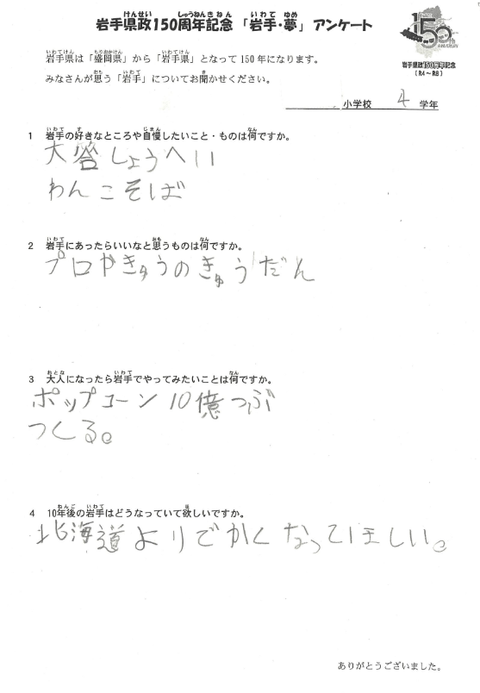 岩手県政150周年記念「岩手・夢」アンケート
150th
岩手県政150周年記念
(R4～R8)
岩手県は「盛岡県」から「岩手県」となって150年になります。
みなさんが思う「岩手」についてお聞かせください。
小学校 4 学年
1 岩手の好きなところや自慢したいこと・ものは何ですか。
大谷しょうへい
わんこそば
2 岩手にあったらいいなと思うものは何ですか。
プロやきゅうのきゅうだん
3 大人になったら岩手でやってみたいことは何ですか。
ポップコーン10億つぶ
つくる。
4 10年後の岩手はどうなっていて欲しいですか。
北海道よりでかくなってほしい。
ありがとうございました。